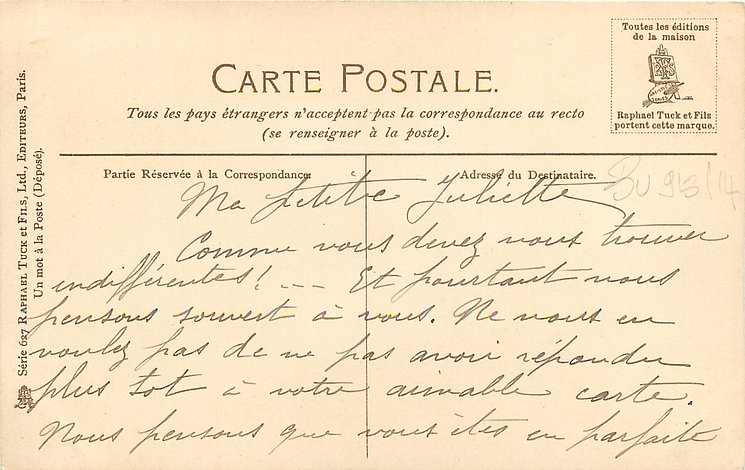 Toutes les éditions
de la maison
Raphael Tuck et Fils
portent cette marque.
CARTE POSTALE.
Tous les pays étrangers n'acceptent pas la correspondance au recto
(se renseigner à la poste).
Partie Réservée à la Correspondance.
Adresse du Destinataire.
Ma petite Juliette
Comme vous devez nous trouver
indifférentes! --- Et pourtant nous
pensons souvent à vous. Ne nous en
voulez pas de ne pas avoir répondu
plus tot à votre aimable carte.
Nous pensons que vous êtes en parfaite
Série 627 RAPHAEL TUCK ET FILS, Ltd., EDITEURS, Paris.
Un mot à la Poste (Déposé).